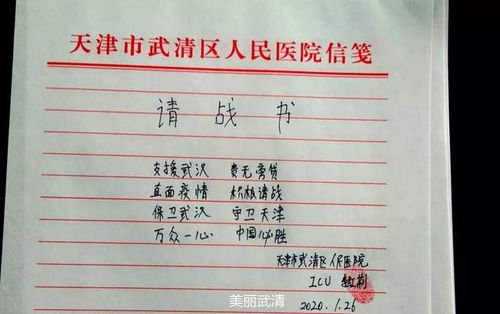 天津市武清区人民医院信笺
请战书
支援武汉 责无旁贷
直面疫情 积极请战
保卫武汉 守卫天津
万众一心 中国必胜
天津市武清区人民医院
ICU
2020.1.26
美丽武清